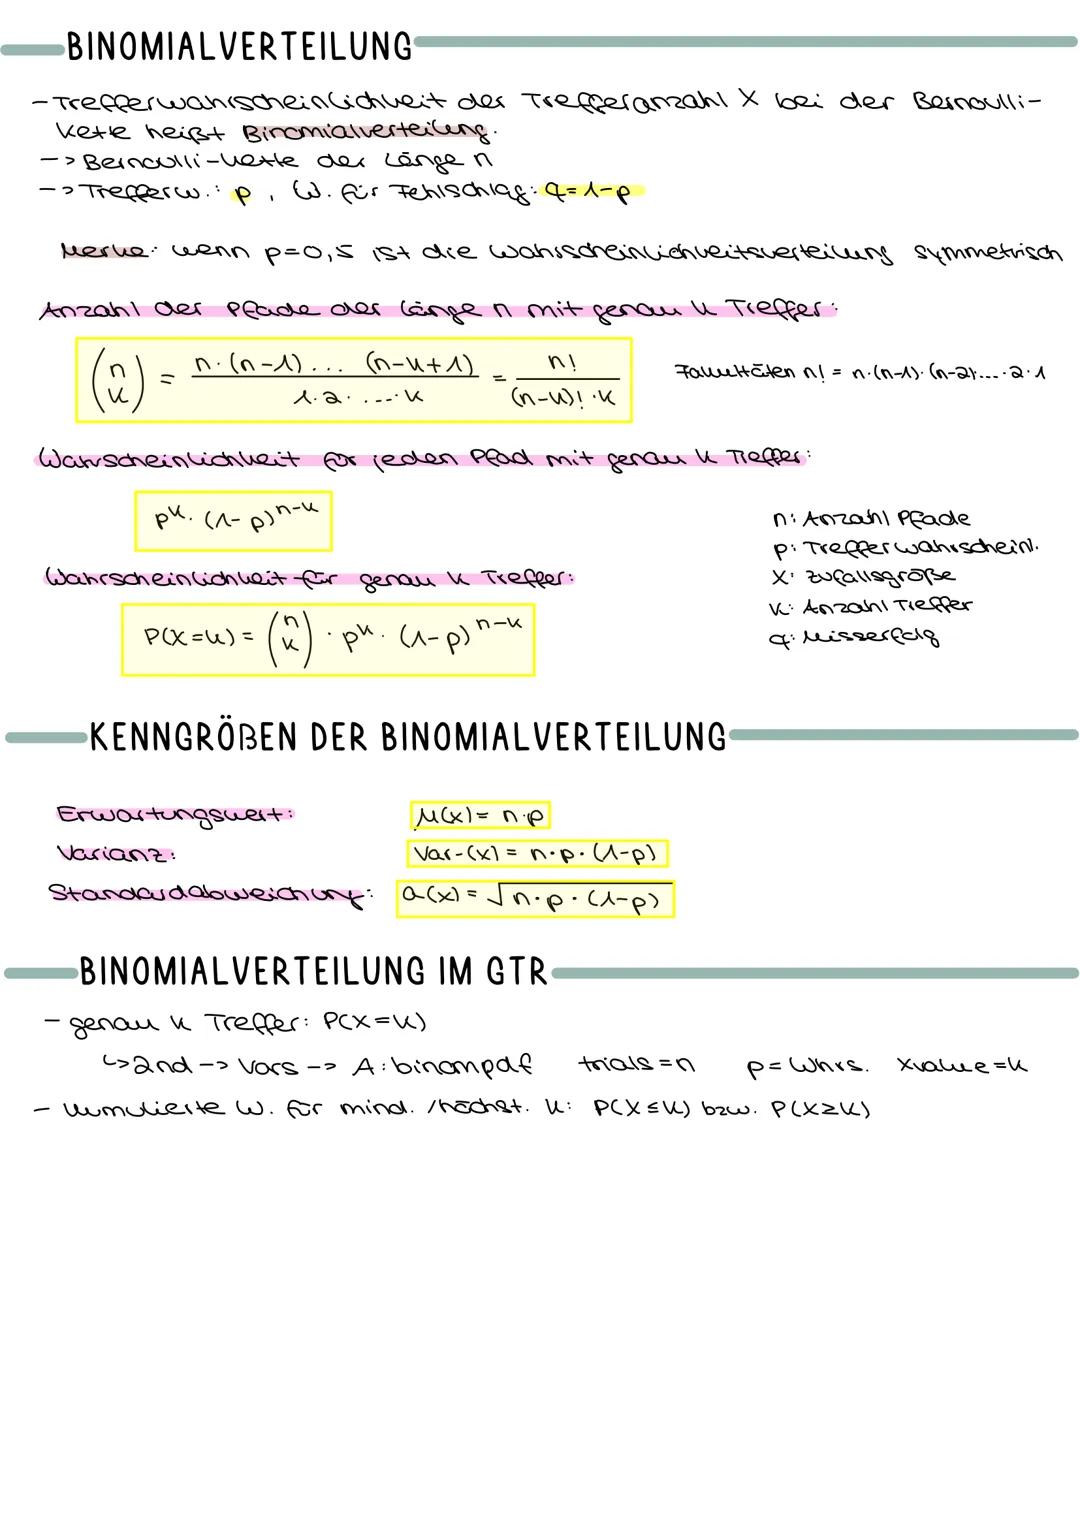 BINOMIALVERTEILUNG
- Trefferwahrscheinlichkeit der Trefferanzahl X bei der Bernoulli-
Kette heißt Binomialverteilung.
-> Bernoulli-Kette der Länge n
-> Trefferw.: p, W. für Fehlschlag: q=1-p
Merke: wenn p=0,5 ist die Wahrscheinlichkeitsverteilung symmetrisch
Anzahl der Pfade der Länge n mit genau k Treffer:
(n k) = n·(n-1)... (n-k+1) / 1·2·....·k = n! / (n-k)!·k
Fakultäten n! = n·(n-1)·(n-2)·...·2·1
Wahrscheinlichkeit für jeden Pfad mit genau k Treffer:
p^k·(1-p)^n-k
n: Anzahl Pfade
p: Trefferwahrscheinl.
X: Zufallsgröße
k: Anzahl Treffer
q: Misserfolg
Wahrscheinlichkeit für genau k Treffer:
P(X=k) = (n k) · p^k · (1-p)^n-k
KENNGRÖßEN DER BINOMIALVERTEILUNG
Erwartungswert: μ(x) = n·p
Varianz: Var-(x) = n·p·(1-p)
Standardabweichung: a(x) = √n·p·(1-p)
BINOMIALVERTEILUNG IM GTR
- genau k Treffer: P(X=k)
↳2nd -> Vars -> A:binompdf trials=n p=Whrs. xvalue=k
- kumulierte W. für mind. /höchst. k: P(X≤k) bzw. P(X≥k)